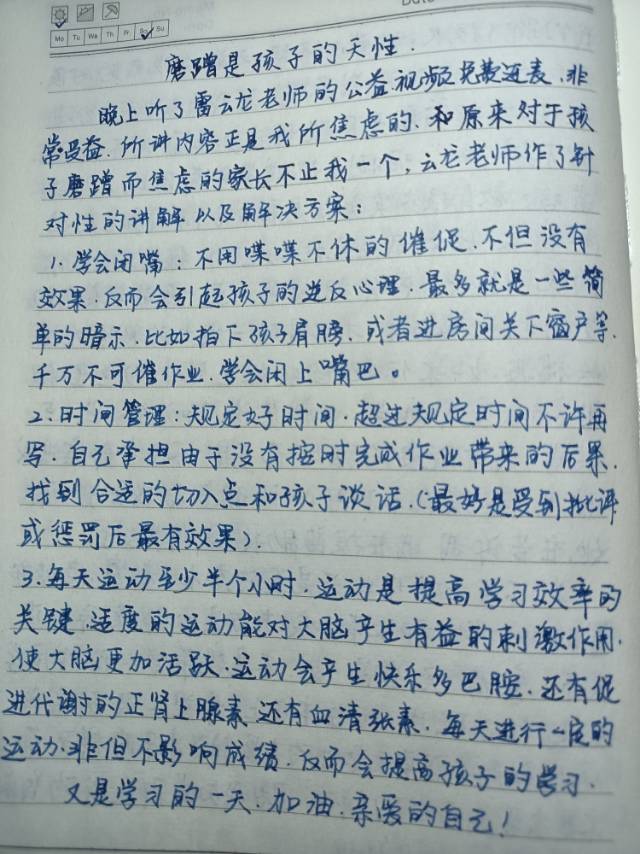 Date
Mo Tu We Th Fr Sa Su
磨蹭是孩子的天性.
晚上听了雷云龙老师的公益视频免费逐表,非
常受益.所讲内容正是我所焦虑的.和原来对于孩
子磨蹭而焦虑的家长不止我一个,云龙老师作了针
对性的讲解以及解决方案:
1.学会闭嘴:不用喋喋不休的催促.不但没有
效果.反而会引起孩子的逆反心理.最多就是一些简
单的暗示.比如拍下孩子肩膀.或者进房间关下窗户等.
千万不可催作业.学会闭上嘴巴。
2.时间管理:规定好时间.超过规定时间不许再
写.自己承担由于没有按时完成作业带来的后果.
找到合适的切入点和孩子谈话.(最好是受到批评
或惩罚后最有效果).
3.每天运动至少半个小时.运动是提高学习效率的
关键.适度的运动能对大脑产生有益的刺激作用.
使大脑更加活跃.运动会产生快乐多巴胺.还有促
进代谢的正肾上腺素.还有血清张素.每天进行一度的
运动.非但不影响成绩.反而会提高孩子的学习.
又是学习的一天.加油.亲爱的自己!